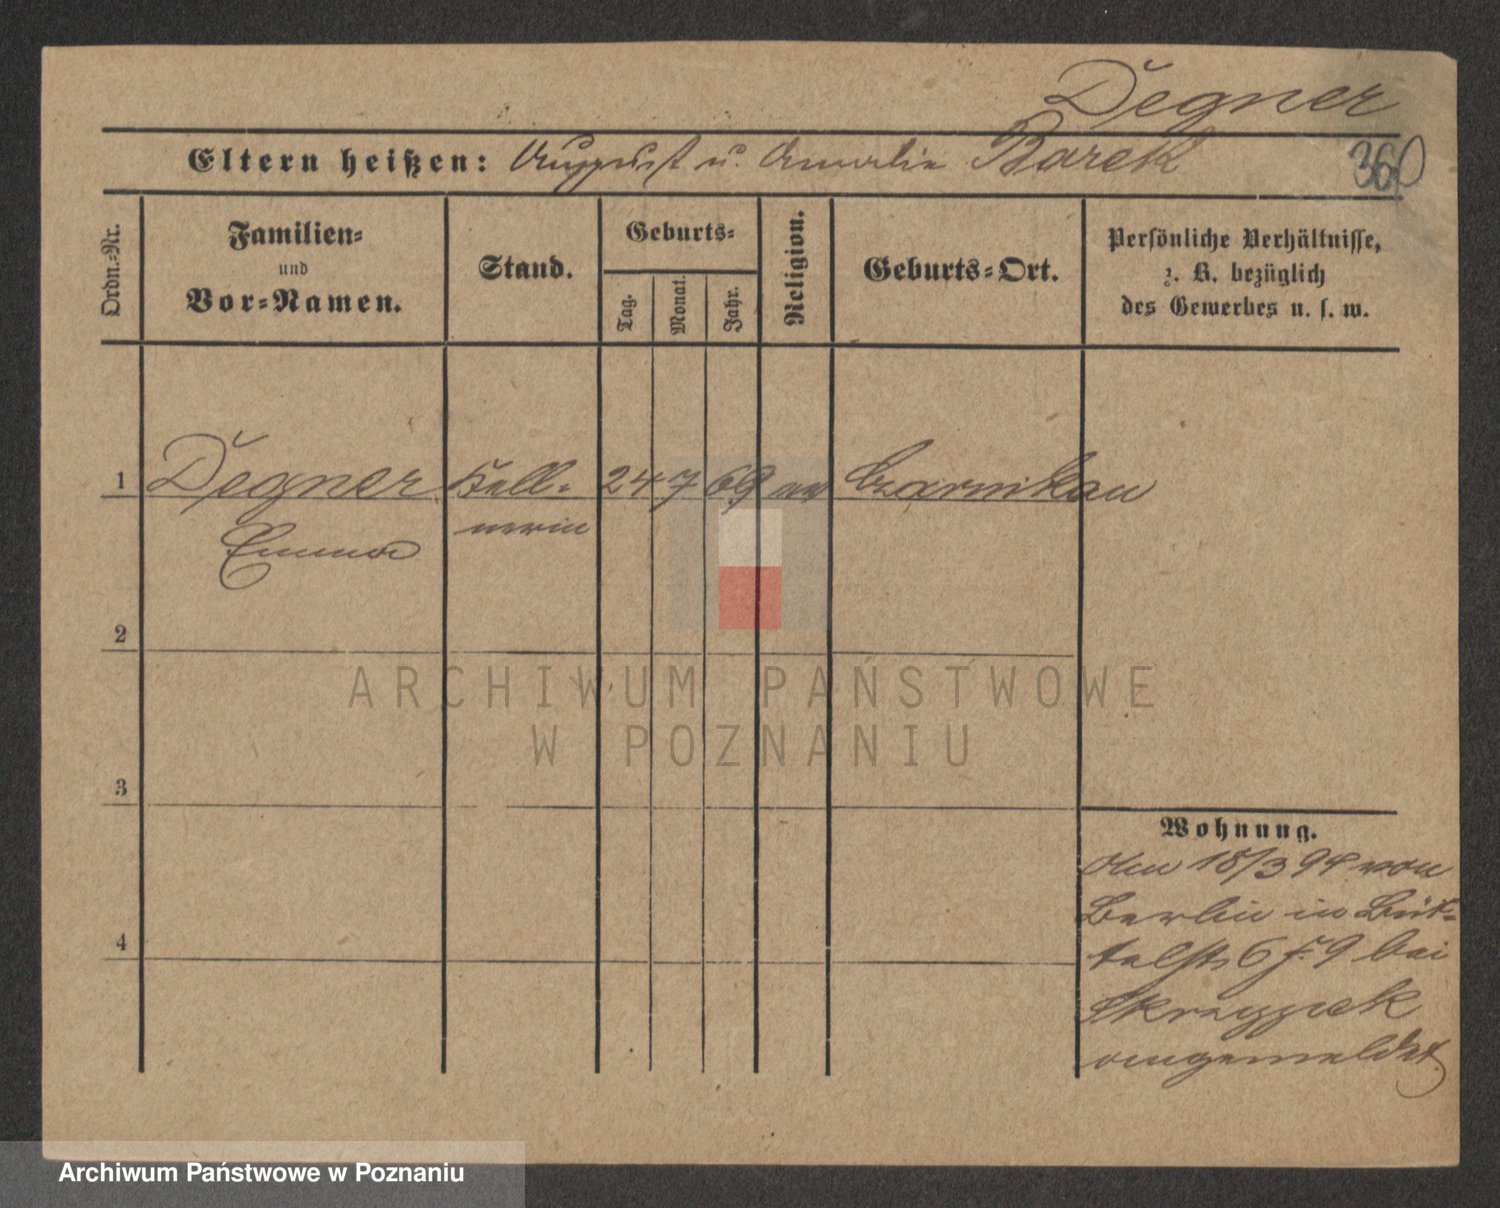 Degner
Eltern heißen: August u. Amalie Barek
360
Ordn.-Nr.
Familien-
und
Vor-Namen.
Stand.
Geburts-
Tag.
Monat.
Jahr.
Religion.
Geburts-Ort.
Persönliche Verhältnisse,
z. B. bezüglich
des Gewerbes u. s. w.
1 Degner Kell- 24 7 69 ev Czarnikau
Emma nerin
2
ARCHIWUM PAŃSTWOWE
W POZNANIU
3
Wohnung.
Am 18/3 94 von
Berlin in Büt-
telstr 6 f. 9 bei
Skrzypek
angemeldet.
4
Archiwum Państwowe w Poznaniu